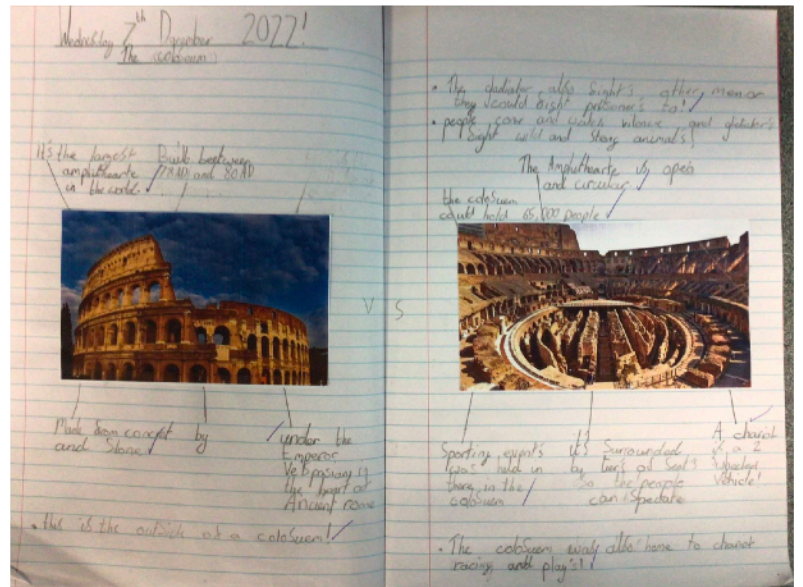 Wednesday 7th December 2022!
The coloseum
It's the largest
amphuthearte
in the world.
Built beetween
72AD and 80AD
Made from concret
and Stone
by
under the
Emperor
Vespasian in
the heart of
Ancient rome
• this is the outside of a coloSuem!
V S
• The gladiator also fight's other men or
they could fight prisoner's to!
• people come and watch vilance and gladiator's
fight wild and strong animals!
The Amphuthearte is open
and circular
the coloSuem
could hold 65,000 people
Sporting event's
was held in
there in the
coloSuem
it's Surrounded
by tier's of Seat's
So the people
can Spectate
A chariot
is a 2
wheeled
Vehicle!
• The coloSuem was also home to chariot
racing and play's!